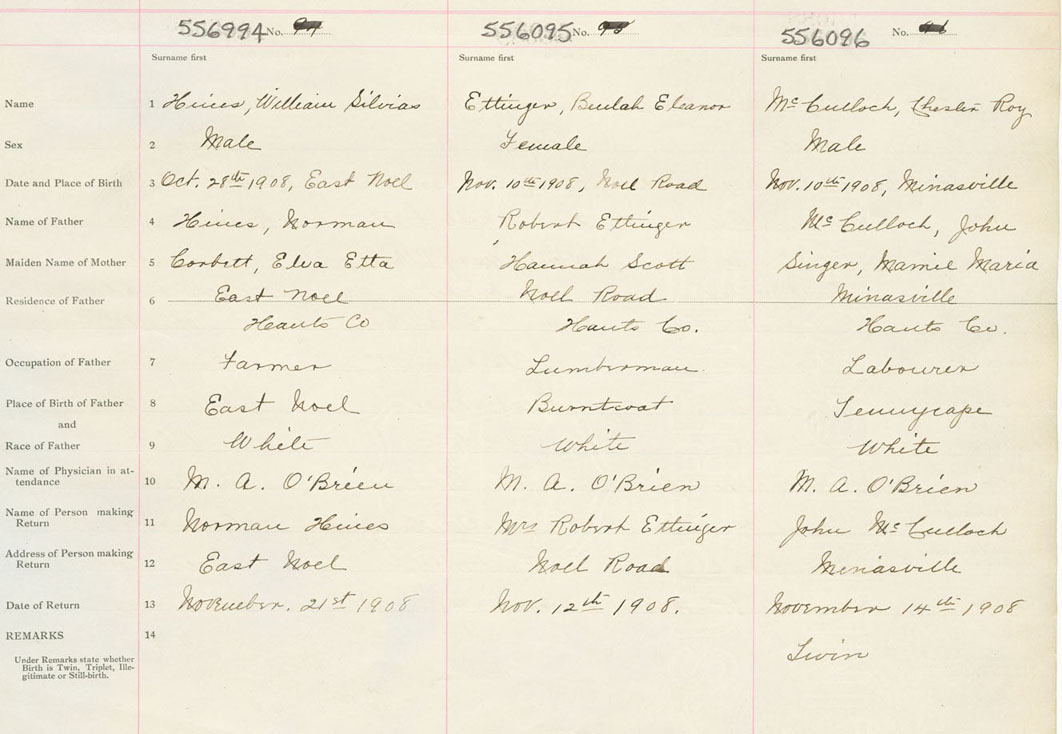 556994 No.
556095 No. 95
556096 No.
Surname first
Surname first
Surname first
Name 1 Hines, William Silvias Ettinger, Beulah Eleanor McCulloch, Chester Roy
Sex 2 Male Female Male
Date and Place of Birth 3 Oct. 28th 1908, East Noel Nov. 10th 1908, Noel Road Nov. 10th 1908, Minasville
Name of Father 4 Hines, Norman Robert Ettinger McCulloch, John
Maiden Name of Mother 5 Corbett, Elva Etta Hannah Scott Singer, Mamie Maria
Residence of Father 6 East Noel Noel Road Minasville
Hants Co Hants Co. Hants Co.
Occupation of Father 7 Farmer Lumberman Labourer
Place of Birth of Father 8 East Noel Burntcoat Tennycape
and
Race of Father 9 White White White
Name of Physician in at-
tendance 10 M. A. O'Brien M. A. O'Brien M. A. O'Brien
Name of Person making
Return 11 Norman Hines Mrs Robert Ettinger John McCulloch
Address of Person making
Return 12 East Noel Noel Road Minasville
Date of Return 13 November. 21st 1908 Nov. 12th 1908. November 14th 1908
REMARKS 14
Twin
Under Remarks state whether
Birth is Twin, Triplet, Ille-
gitimate or Still-birth.